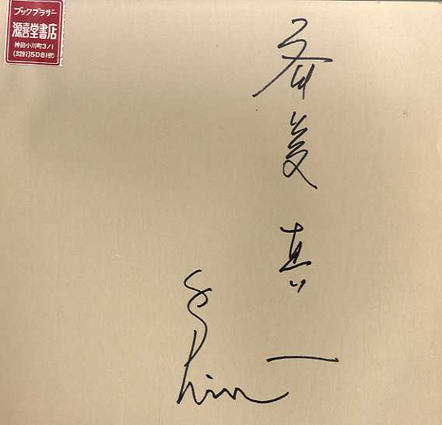 ブックブラザー
源喜堂書店
神田小川町3ノ1
(3291)5081㈹
斎藤真一
Shin